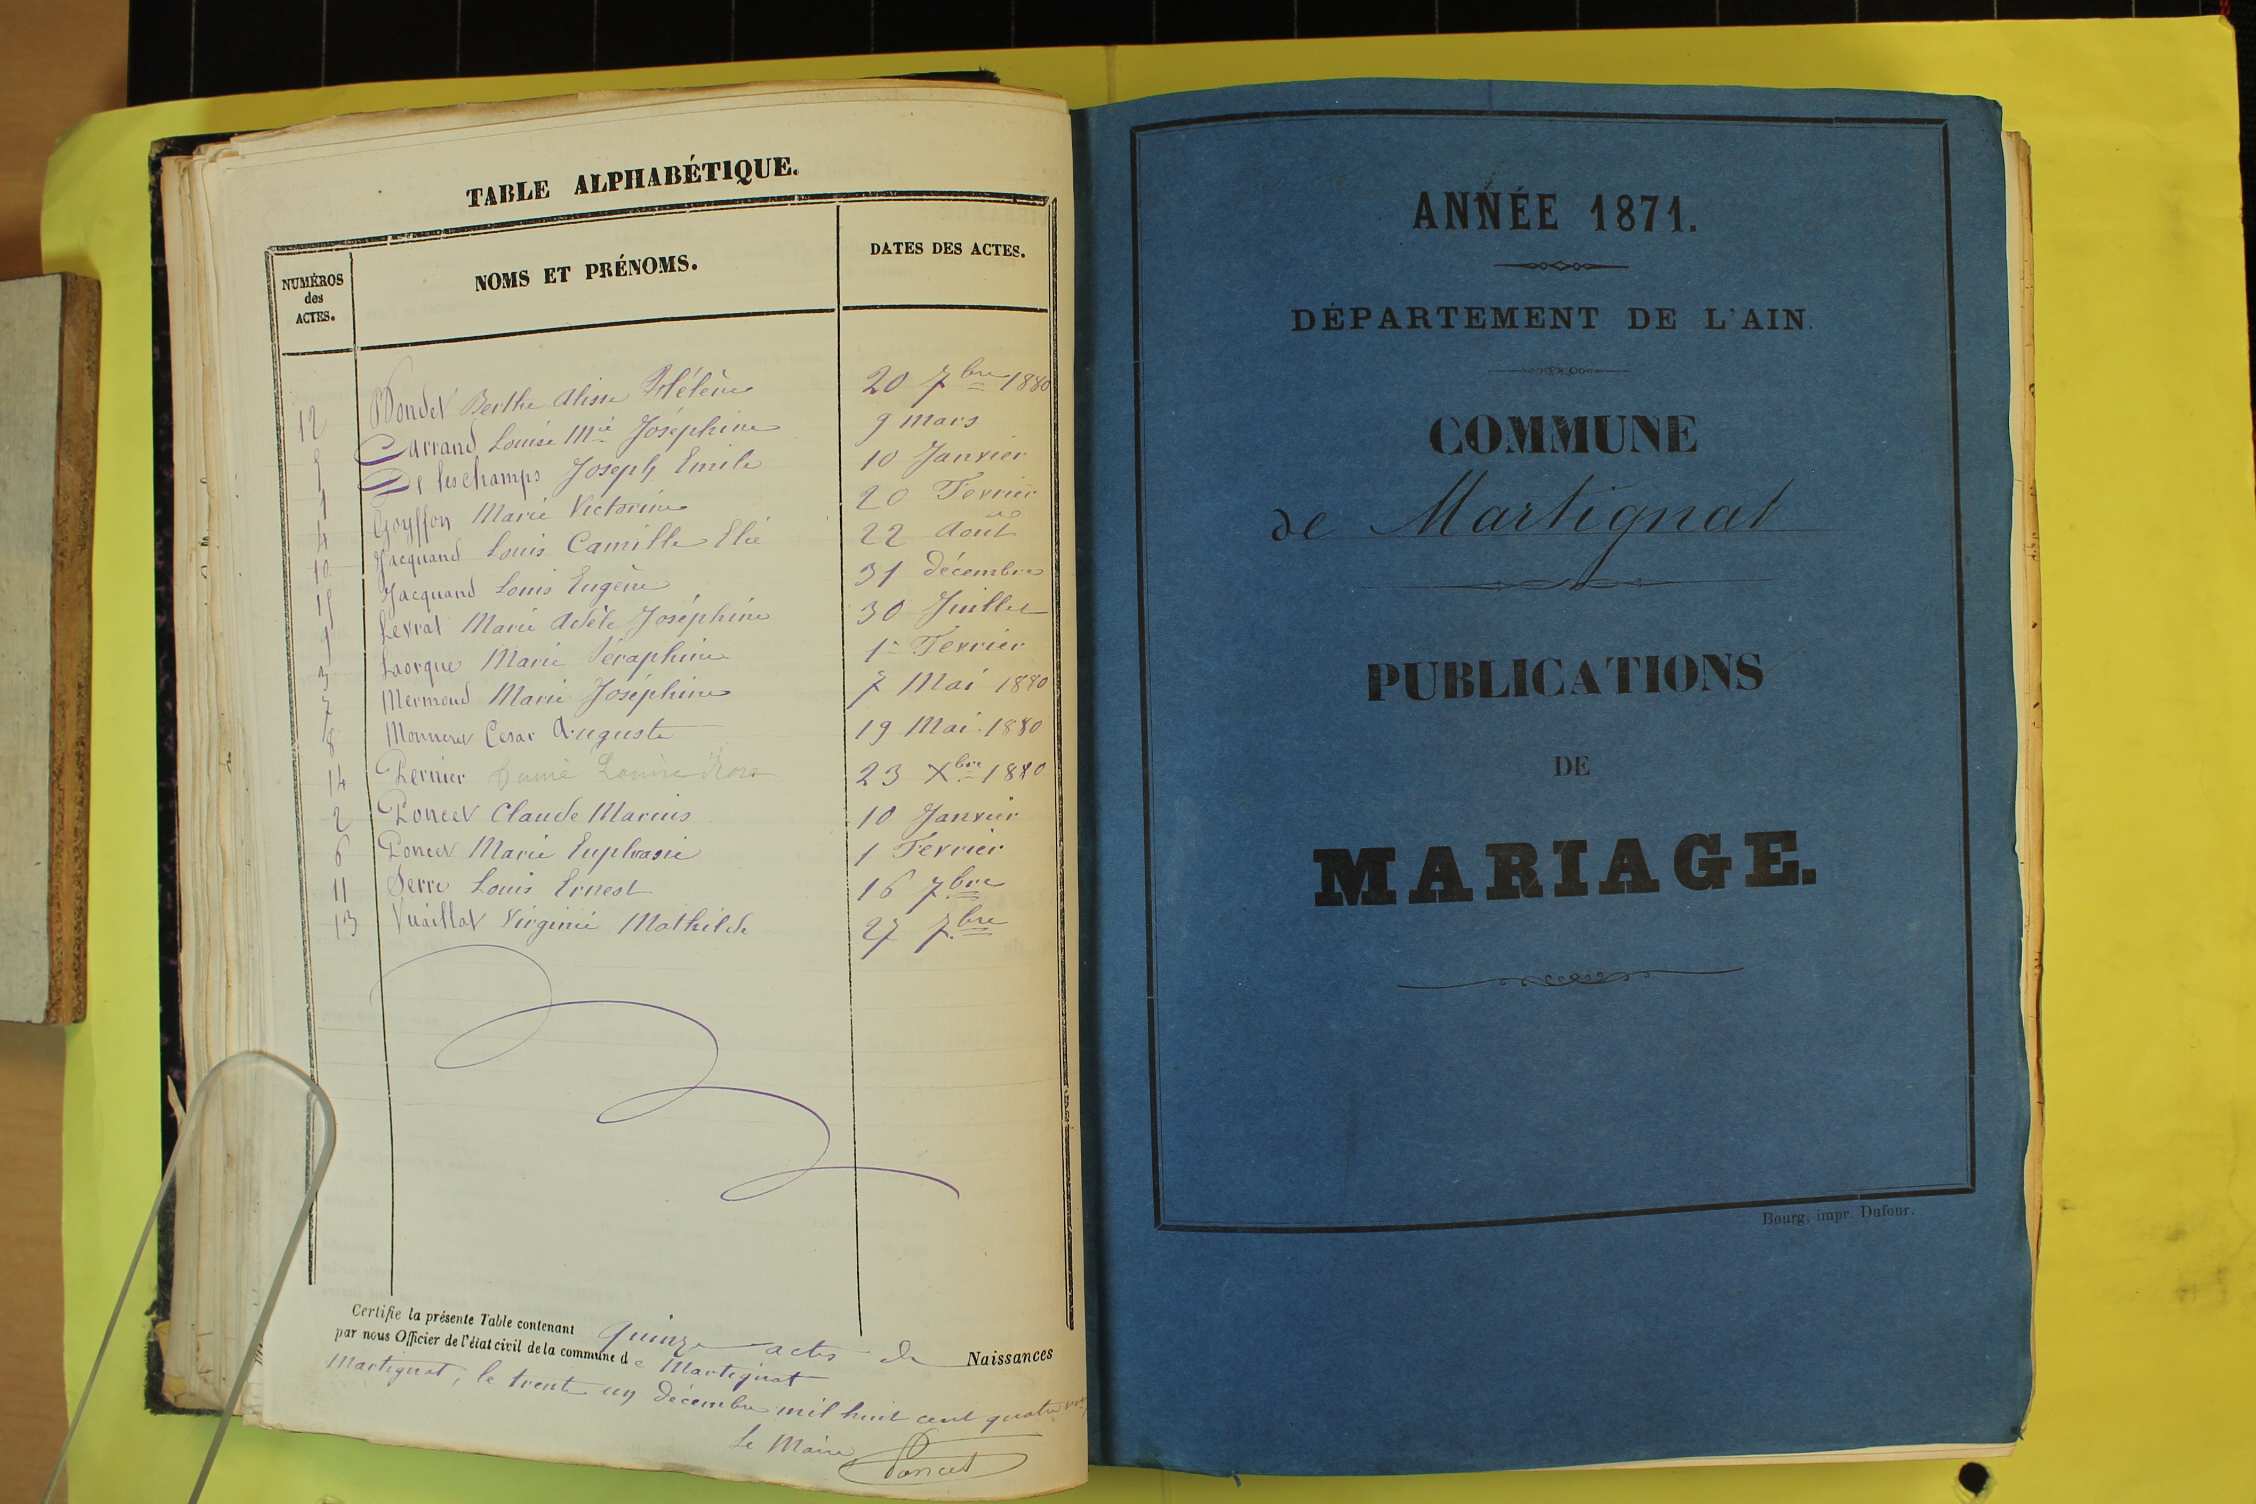 TABLE ALPHABÉTIQUE.
NUMÉROS
des
ACTES.
NOMS ET PRÉNOMS.
DATES DES ACTES.
12 Bondet Berthe Alise Hélène 20 7bre 1880
5 Carrand Louise Mie Joséphine 9 mars
1 De Joseph Emile 10 Janvier
4 Goyffon Marie Victorine 20 Fevrier
10 Jacquand Louis Camille Elie 22 Août
15 Jacquand Louis Eugène 31 décembre
9 Levrat Marie Adèle Joséphine 30 Juillet
3 Marie Séraphine 1er Fevrier
7 Mermoud Marie Joséphine 7 Mai 1880
8 Monneret César Auguste 19 Mai 1880
14 Pernier Louise 23 Xbre 1880
2 Poncet Claude Marius 10 Janvier
6 Poncet Marie Euphrasie 1 Fevrier
11 Serre Louis Ernest 16 7bre
13 Vuaillat Virginie Mathilde 27 7bre
Certifie la présente Table contenant quinze actes de Naissances
par nous Officier de l'état civil de la commune de Martignat
Martignat, le trente un décembre mil huit cent quatre vgt
Le Maire
Poncet
ANNÉE 1871.
DÉPARTEMENT DE L'AIN.
COMMUNE
de Martignat
PUBLICATIONS
DE
MARIAGE.
Bourg, impr. Dufour.